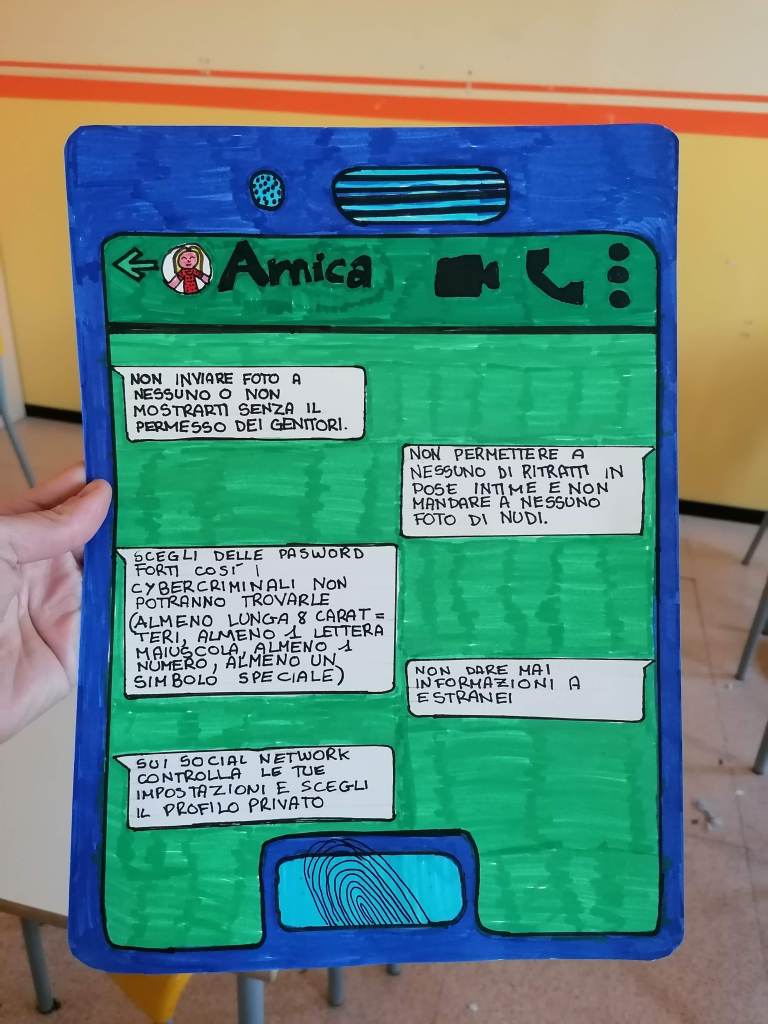 Amica
NON INVIARE FOTO A
NESSUNO O NON
MOSTRARTI SENZA IL
PERMESSO DEI GENITORI.
NON PERMETTERE A
NESSUNO DI RITRATTI IN
POSE INTIME E NON
MANDARE A NESSUNO
FOTO DI NUDI.
SCEGLI DELLE PASWORD
FORTI COSÍ I
CYBERCRIMINALI NON
POTRANNO TROVARLE
(ALMENO LUNGA 8 CARAT=
TERI, ALMENO 1 LETTERA
MAIUSCOLA, ALMENO 1
NUMERO, ALMENO UN
SIMBOLO SPECIALE)
NON DARE MAI
INFORMAZIONI A
ESTRANEI
SUI SOCIAL NETWORK
CONTROLLA LE TUE
IMPOSTAZIONI E SCEGLI
IL PROFILO PRIVATO